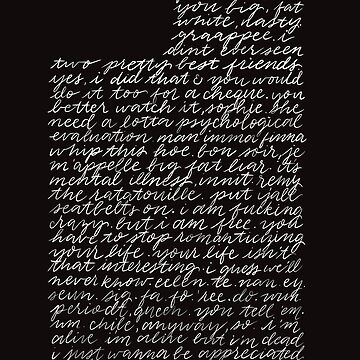 you big, fat
white, nasty.
graappee. i
dint ever seen
two pretty best friends.
yes, i did that & you would
do it too for a cheque. you
better watch it, sophie. she
need a lotta psychological
evaluation man. imma finna
whip this hoe. bon soir, je
m'appelle big fat liar. its
mental illness, innit. remy
the ratatouille. put yall
seatbelts on. i am fulking
crazy. but i am flee. you
have to stop romantiching
your life. your life isn't
that interesting. i guess we'll
never know.
um, chile, anyway, so. i'm
alive. im alive but i'm dead
i just wanna be appreciated